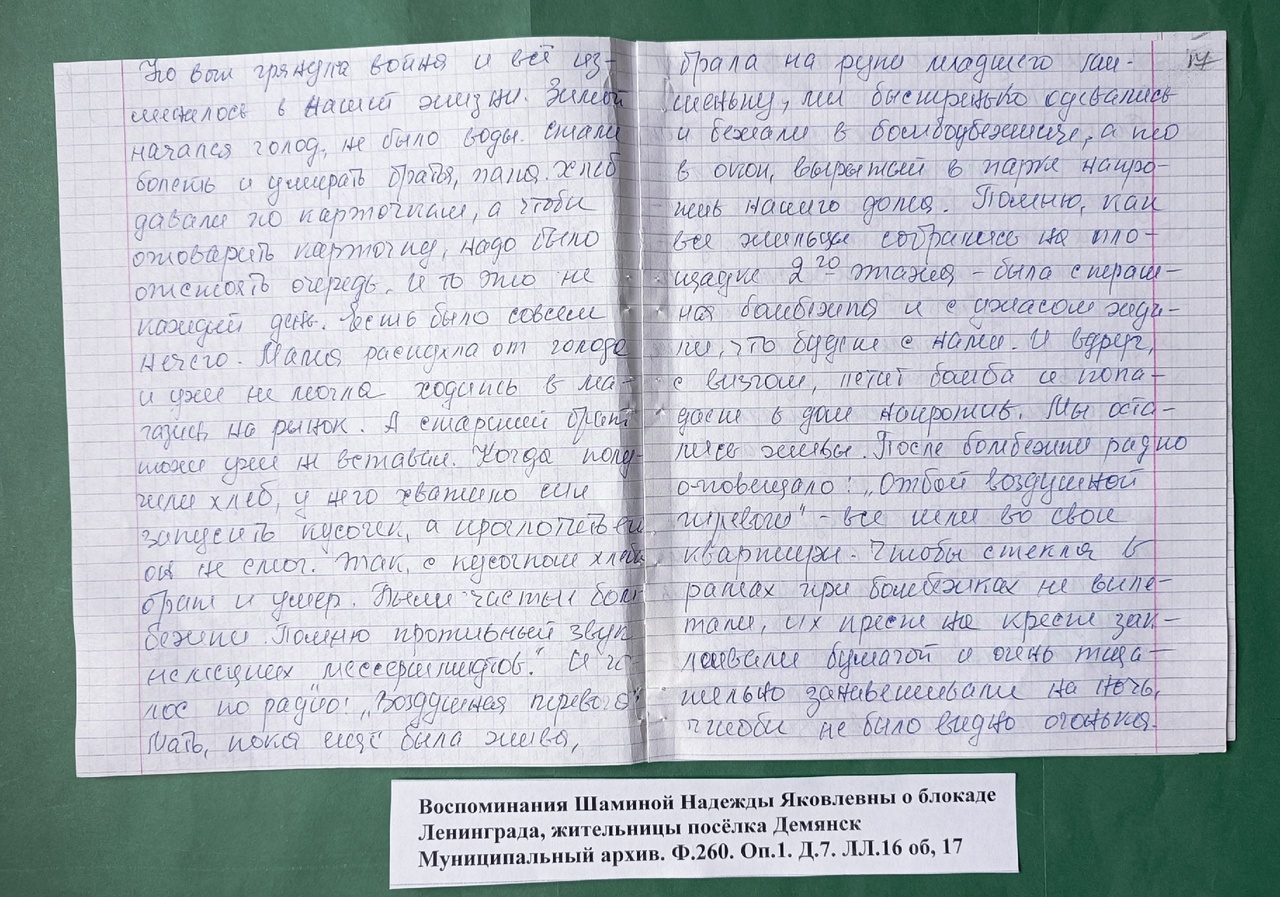 Но вот грянула война и всё из-
менилось в нашей жизни. Зимой
начался голод, не было воды. Стали
болеть и умирать братья, папа. Хлеб
давали по карточкам, а чтобы
отоварить карточку, надо было
отстоять очередь. И то это не
каждый день. Есть было совсем
нечего. Мама распухла от голода
и уже не могла ходить в ма-
газин, на рынок. А старший брат
тоже уже не вставал. Когда полу-
чили хлеб, у него хватило сил
запусить кусочек, а проглотить его
он не смог. Так, с кусочком хлеба
брат и умер. Были частые бом
бежки. Помню противный звук
немецких "мессершмитов". И го-
лос по радио: "Воздушная тревога"
Мать, пока ещё была жива,
17
брала на руки младшего
, мы быстренько одевались
и бежали в бомбоубежище, а то
в окоп, вырытый в парке напро-
тив нашего дома. Помню, как
все жильцы собрались на пло-
щадке 2го этажа - была страш-
ная бомбёжка и с ужасом жда-
ли, что будет с нами. И вдруг,
с визгом, летит бомба и попа-
дает в дом напротив. Мы оста-
лись живы. После бомбежки радио
оповещало: "Отбой воздушной
тревоги" - все шли во свои
квартиры. Чтобы стекла в
рамах при бомбёжках не выле-
тали, их крест на крест зак-
леивали бумагой и очень тща-
тельно занавешивали на ночь,
чтобы не было видно огонька.
Воспоминания Шаминой Надежды Яковлевны о блокаде
Ленинграда, жительницы посёлка Демянск
Муниципальный архив. Ф.260. Оп.1. Д.7. ЛЛ.16 об, 17